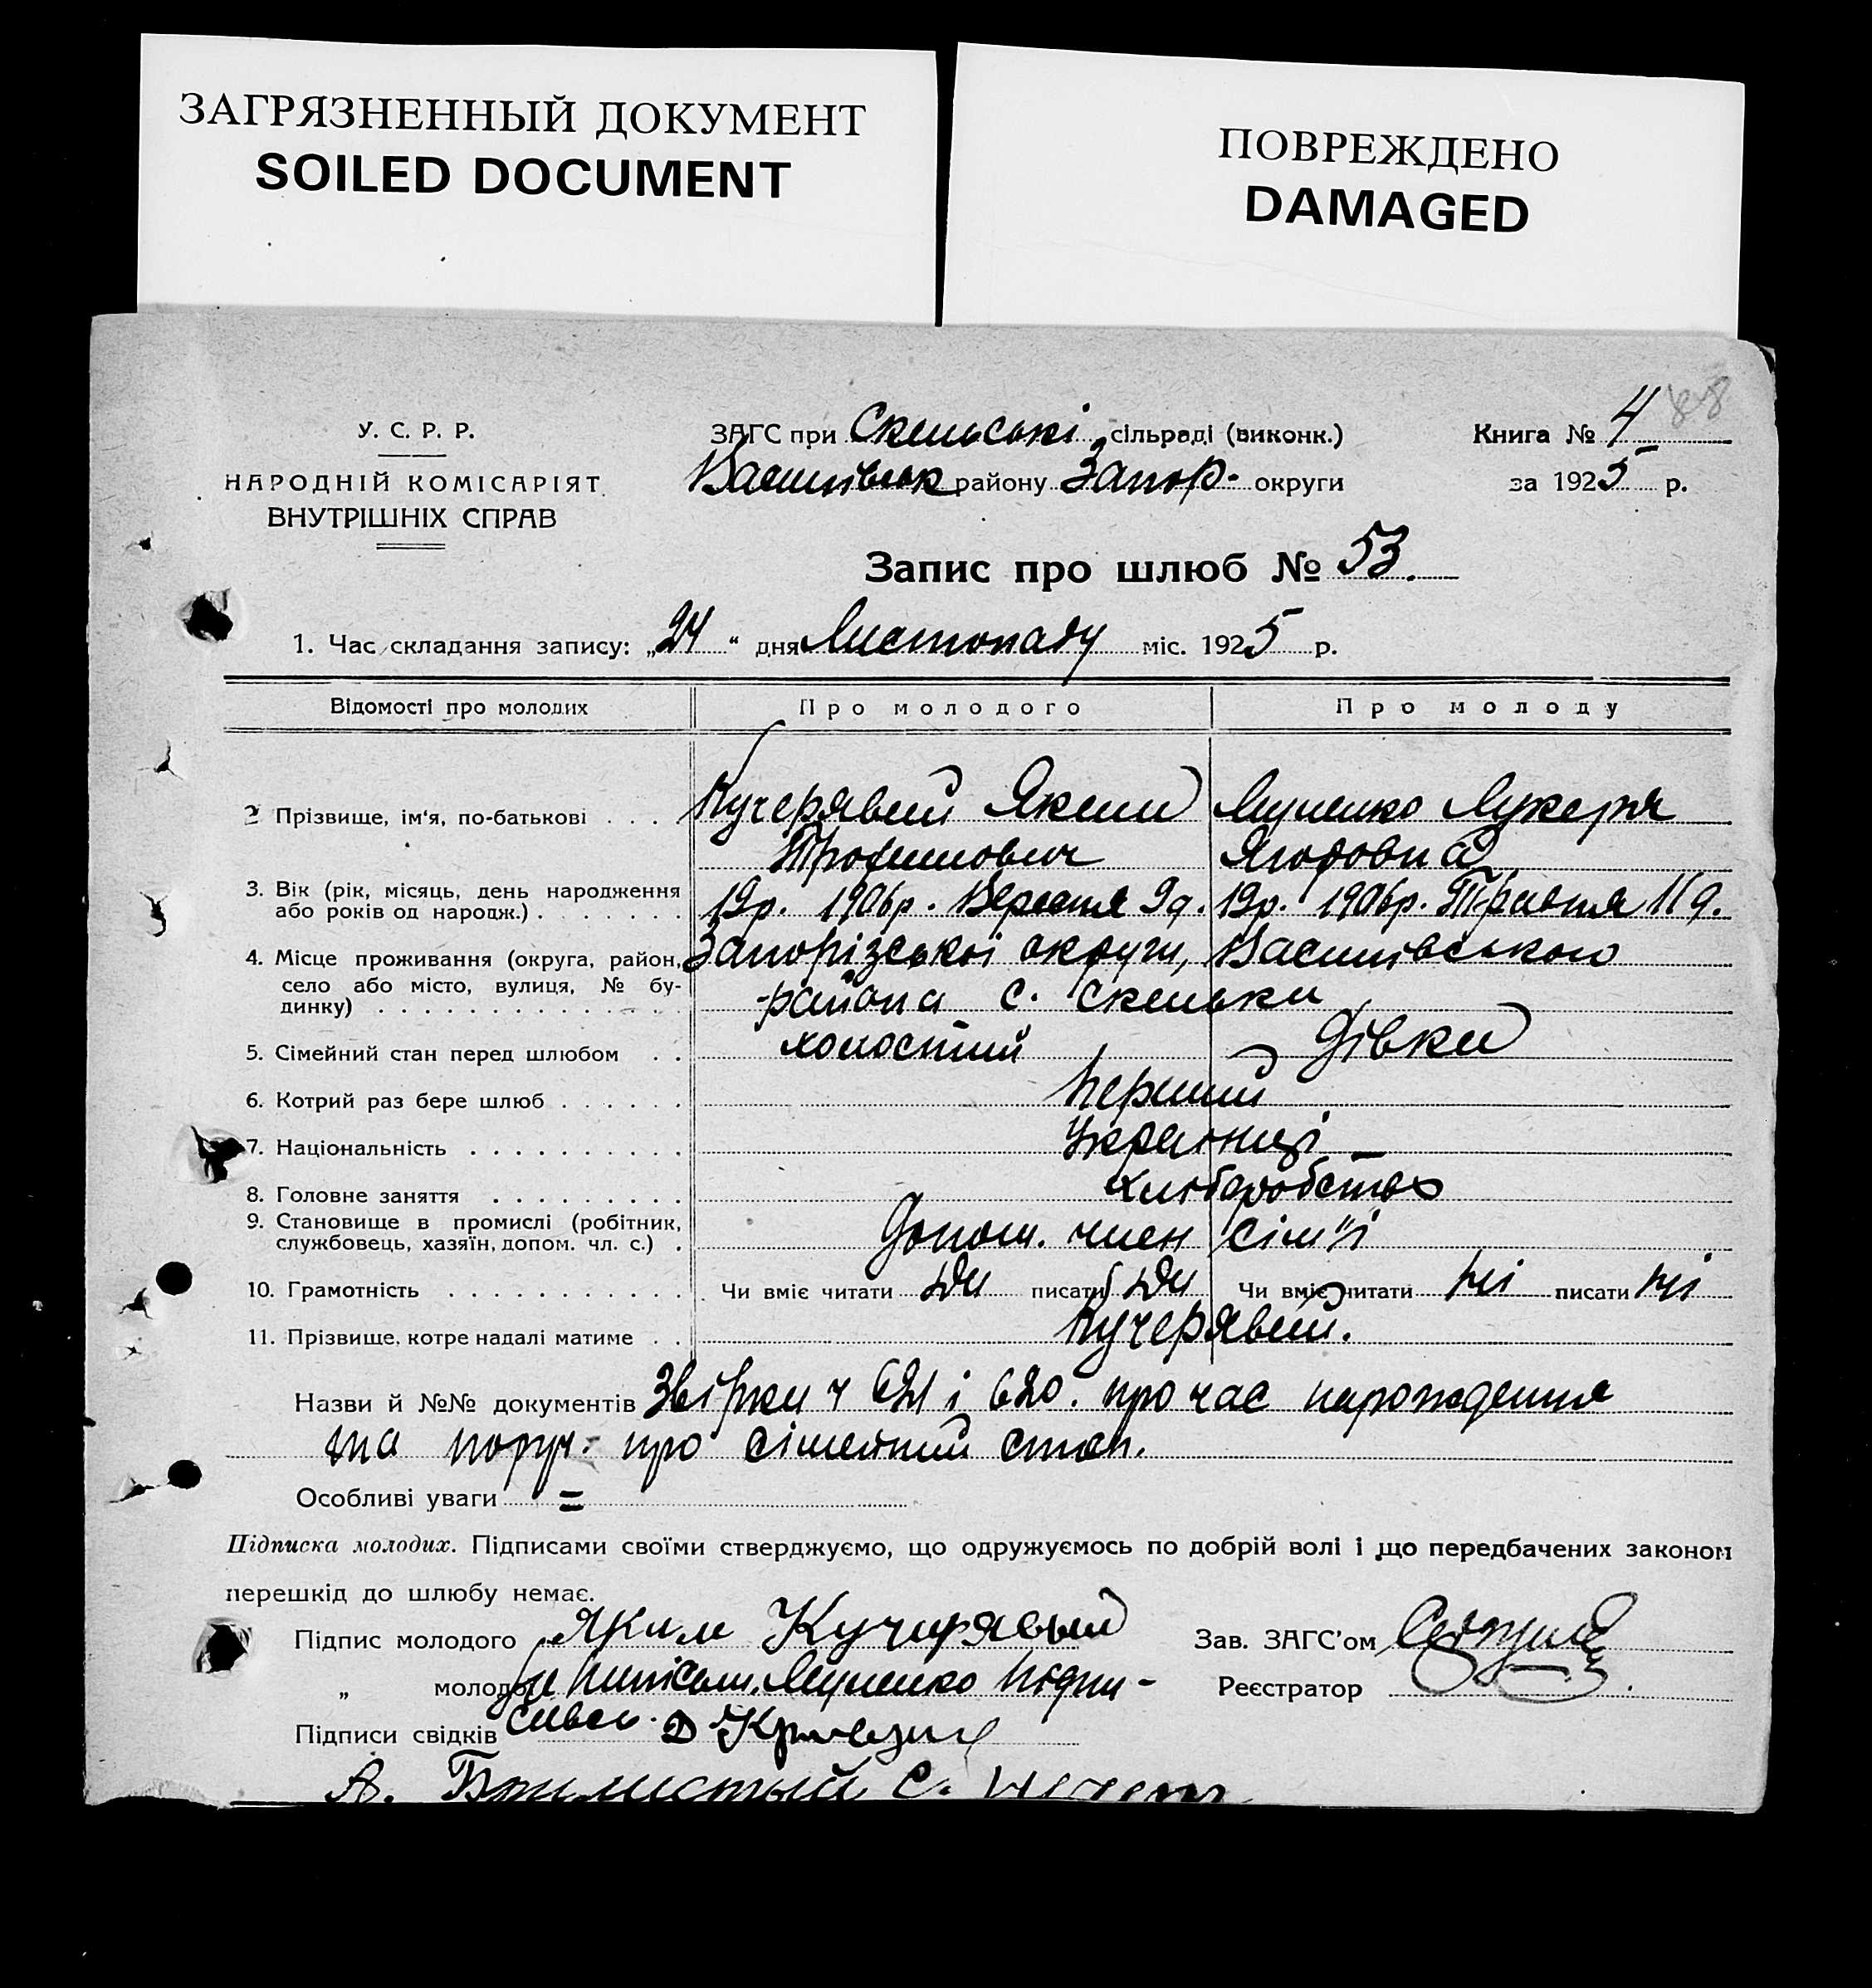 ЗАГРЯЗНЕННЫЙ ДОКУМЕНТ
SOILED DOCUMENT
ПОВРЕЖДЕНО
DAMAGED
88
У. С. Р. Р.
НАРОДНІЙ КОМІСАРІЯТ
ВНУТРІШНІХ СПРАВ
ЗАГС при Скельські сільраді (виконк.)
Василівськ району Запор. округи
Книга № 4
за 1925 р.
Запис про шлюб № 53.
1. Час складання запису: „24“ дня Листопаду міс. 1925 р.
Відомості про молодих Про молодого Про молоду
2 Прізвище, ім'я, по-батькові . . . Кучерявий Яким Трофимович Лукеря
3. Вік (рік, місяць, день народження
або років од народж.) . . . . . . . 19р. 1906р. Вересня 9д. 19р. 1906р. Травня 11д.
4. Місце проживання (округа, район, Запорізської округи, Василівського
село або місто, вулиця, № бу- района с. Скельки
динку) . . . . . . . . . . . . . .
5. Сімейний стан перед шлюбом . . холостий Дівка
6. Котрий раз бере шлюб . . . . . . Перший
7. Національність . . . . . . . . . . Українці
8. Головне заняття . . . . . . . . . хліборобство
9. Становище в промислі (робітник,
службовець, хазяїн, допом. чл. с.) . Допом. член сім"ї
10. Грамотність . . . . . . . . . . . Чи вміє читати да писати да Чи вміє читати ні писати ні
11. Прізвище, котре надалі матиме . . Кучерявий.
Назви й №№ документів ч 621 і 620. про час народження
та поруч. про сімейний стан.
Особливі уваги =
Підписка молодих. Підписами своїми стверджуємо, що одружуємось по добрій волі і що передбачених законом
перешкід до шлюбу немає.
Підпис молодого Яким Кучирявый Зав. ЗАГС'ом
„ молодої Підпи- Реєстратор
Підписи свідків сався. Д
А. С.